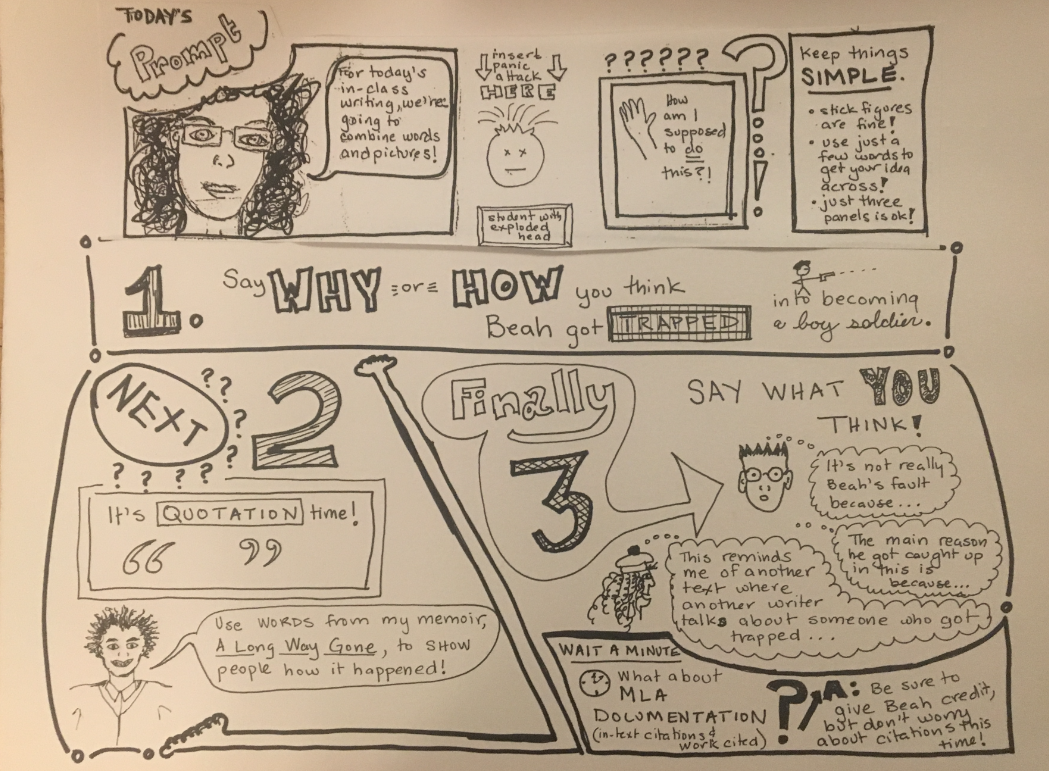 TODAY'S
Prompt
For today's
in-class
writing, we're
going to
combine words
and pictures!
insert
panic
attack
HERE
student with
exploded
head
? ? ? ? ? ?
?
How
am I
supposed
to do
this?!
!
Keep things
SIMPLE.
• stick figures
are fine!
• use just a
few words to
get your idea
across!
• just three
panels is ok!
1. Say WHY or HOW you think
Beah got TRAPPED
into becoming
a boy soldier.
NEXT
? ? ? ? ?
2
? ? ? ?
It's QUOTATION time!
“ ”
Use WORDS from my memoir,
A Long Way Gone, to SHOW
people how it happened!
Finally
3
SAY WHAT YOU
THINK!
It's not really
Beah's fault
because...
The main reason
he got caught up
in this is
because...
This reminds
me of another
text where
another writer
talks about someone who got
trapped...
WAIT A MINUTE
What about
MLA
DOCUMENTATION
(in-text citations &
work cited)
?
A: Be sure to
give Beah credit,
but don't worry
about citations this
time!